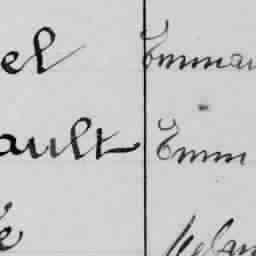 el Emman
ault Emm
é